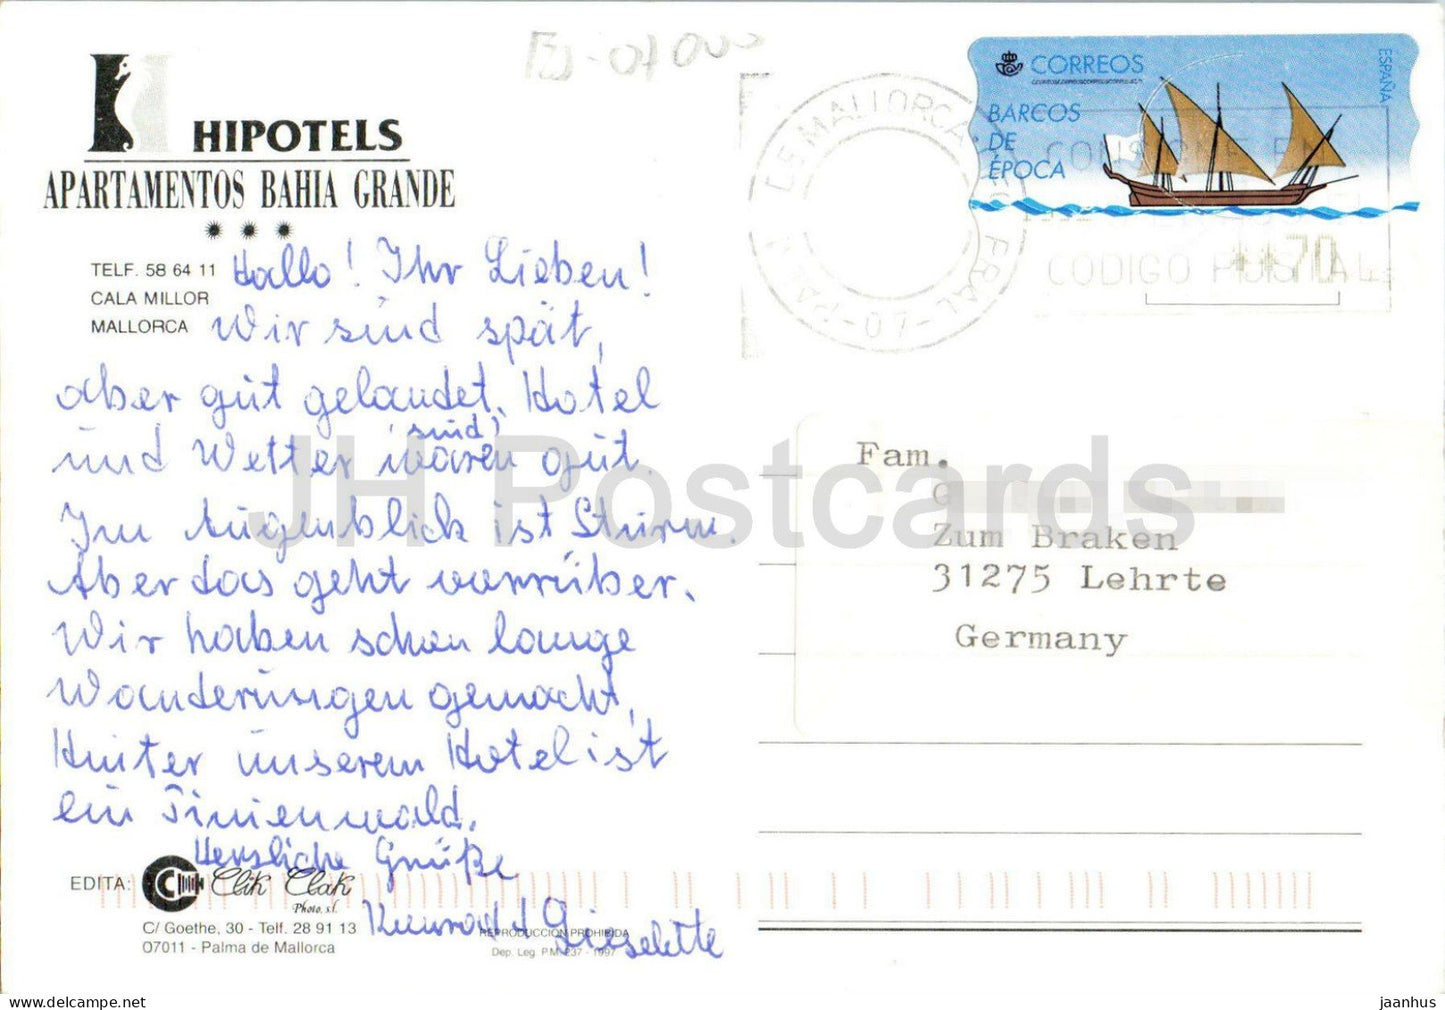 HIPOTELS
APARTAMENTOS BAHIA GRANDE
TELF. 58 64 11
CALA MILLOR
MALLORCA
Hallo! Ihr Lieben!
Wir sind spät,
aber gut gelandet. Hotel
(sind)
und Wetter waren gut.
Im Augenblick ist Sturm.
Aber das geht vorrüber.
Wir haben schon lange
Wanderungen gemacht,
Hinter unserem Hotel ist
ein Pinienwald.
Herzliche Grüße
Konrad + Gieselette
EDITA: Clik Clak
Photo, s.l.
C/ Goethe, 30 - Telf. 28 91 13
07011 - Palma de Mallorca
REPRODUCCION PROHIBIDA
Dep. Leg. P.M. 237 - 1997
CORREOS
ESPAÑA
BARCOS
DE
ÉPOCA
**70
MALLORCA
-07-
CODIGO POSTAL
Fam.
Zum Braken
31275 Lehrte
Germany
JH Postcards
jaanhus